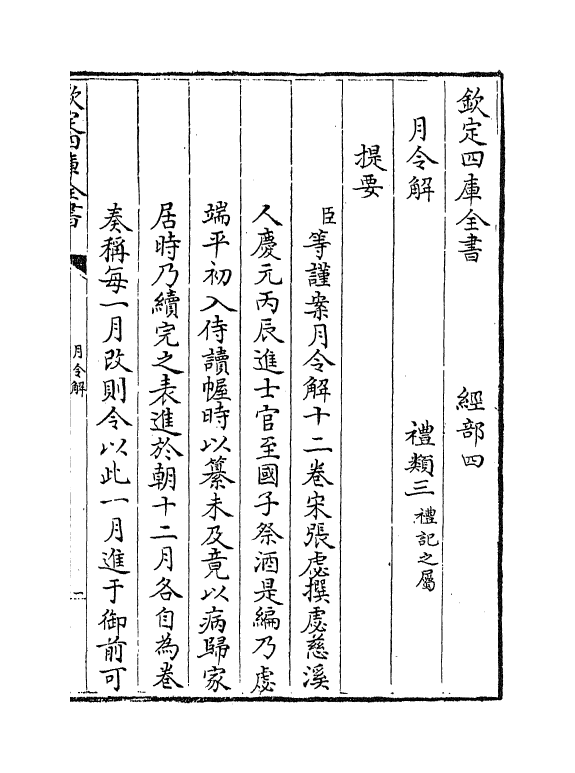 欽定四庫全書　經部四
月令解　禮類三禮記之屬
提要
臣等謹案月令解十二卷宋張虙撰虙慈溪
人慶元丙辰進士官至國子祭酒是編乃虙
端平初入侍讀幄時以纂未及竟以病歸家
居時乃續完之表進於朝十二月各自為卷
奏稱每一月改則令以此一月進于御前可
欽定四庫全書
月令解
一